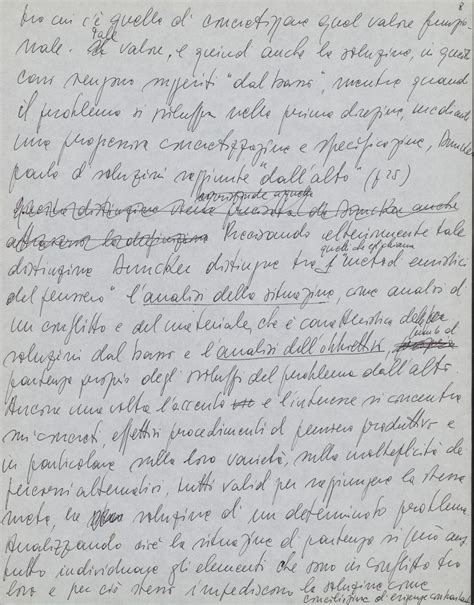 8
tra cui c'è quella di concretizzare quel valore funzio-
nale. Tale valore, e quindi anche la soluzione, in questi
casi vengono suggeriti "dal basso", mentre quando
il problema si sviluppa nella prima direzione, mediante
una progressiva concretizzazione e specificazione, Duncker
parla di soluzioni raggiunte "dall'alto" (p 25)
corrisponde a quella
questa distinzione viene precisata da Duncker anche
attraverso la definizione Precisando ulteriormente tale
quelli che chiama
distinzione Duncker distingue tra i "metodi euristici
del pensiero" l'analisi della situazione, come analisi di
un conflitto e del materiale, che è caratteristica delle
soluzioni dal basso e l'analisi dell'obbiettivo, punto di
partenza proprio degli sviluppi del problema dall'alto.
Ancora una volta l'accento e l'interesse si concentra
sui concreti, effettivi procedimenti di pensiero produttivo e
in particolare sulla loro varietà, sulla molteplicità dei
percorsi alternativi, tutti validi per raggiungere la stessa
meta, la soluzione di un determinato problema.
Analizzando cioè la situazione di partenza si può anzi-
tutto individuare gli elementi che sono in conflitto tra
loro e per ciò stesso impediscono la soluzione come
conciliazione di esigenze contrastanti